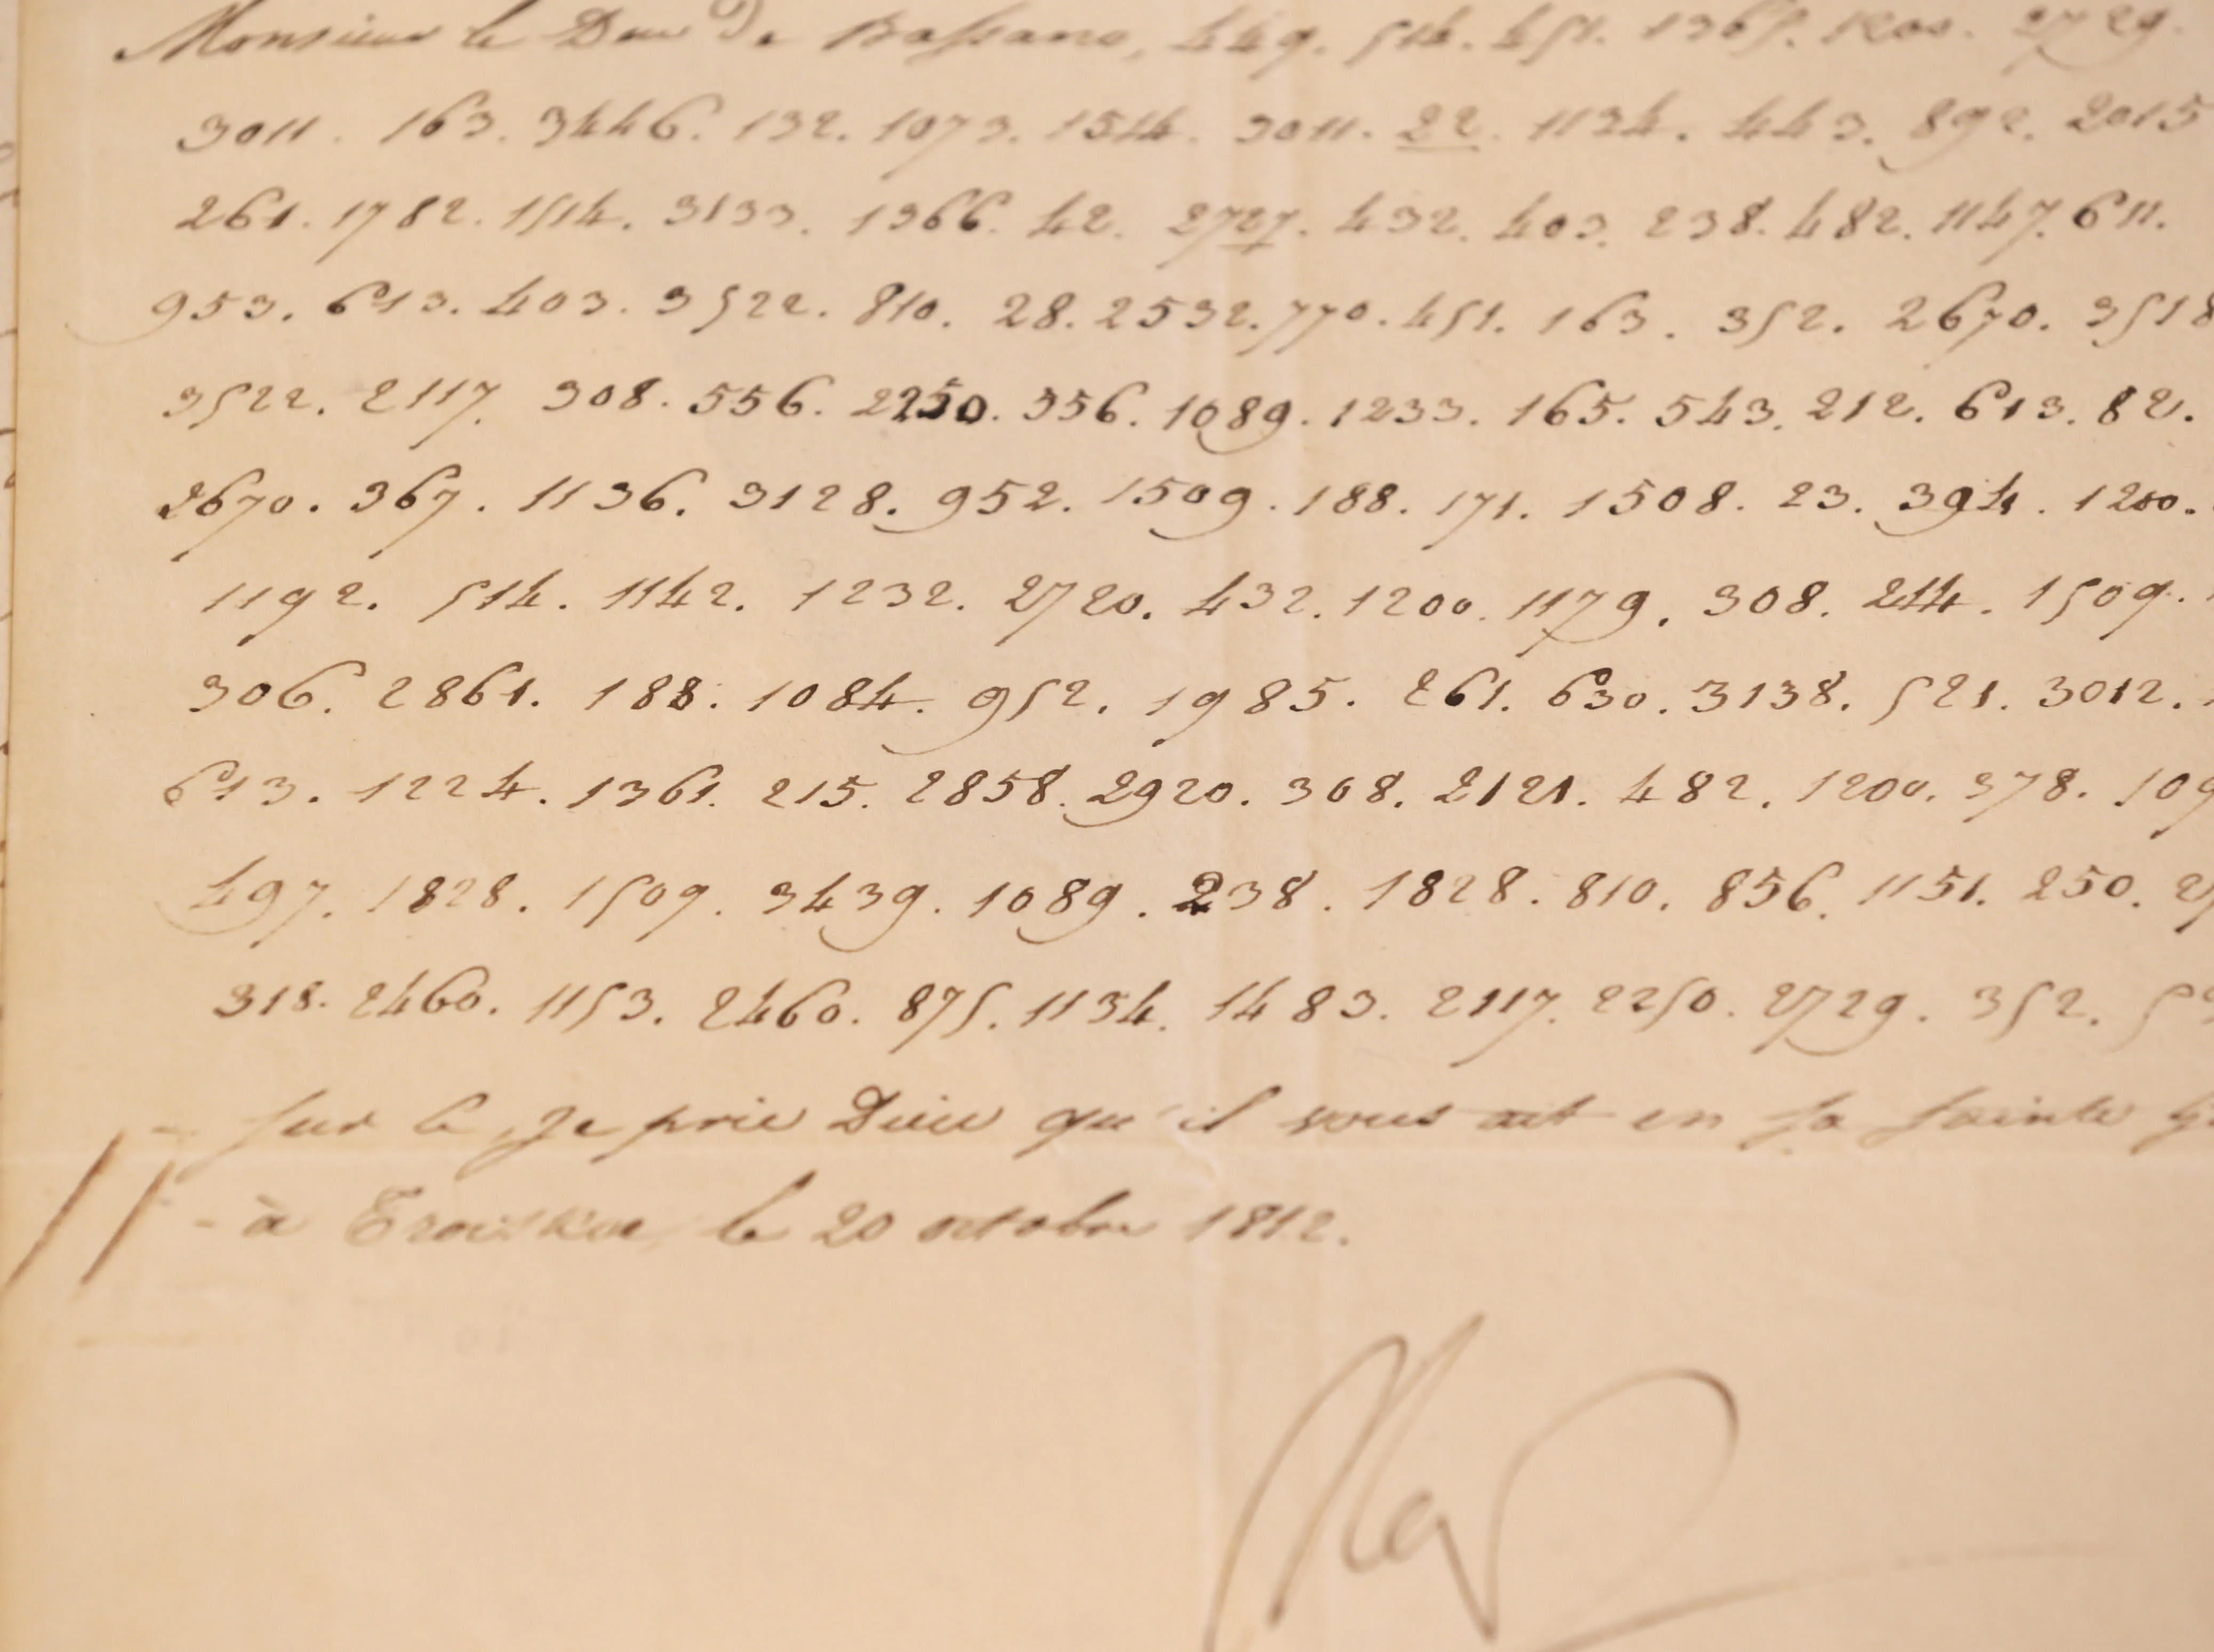 Monsieur le Duc de Bassano, 449. 514. 451. 1365. 1200. 2729.
3011. 163. 3446. 132. 1073. 1514. 3011. 22. 1134. 443. 892. 2015
261. 1782. 1514. 3133. 1366. 42. 2727. 432. 403. 238. 482. 1147. 611.
953. 613. 403. 3522. 810. 28. 2532. 770. 451. 163. 352. 2670. 3518
3522. 2117. 308. 556. 2250. 356. 1089. 1233. 165. 543. 212. 613. 82.
2670. 367. 1136. 3128. 952. 1509. 188. 171. 1508. 23. 394. 1200.
1192. 514. 1142. 1232. 2720. 432. 1200. 1179. 308. 214. 1509.
306. 2861. 188. 1084. 952. 1985. 261. 630. 3138. 521. 3012.
613. 1224. 1361. 215. 2858. 2920. 308. 2121. 482. 1200. 378. 109
497. 1828. 1509. 3439. 1089. 238. 1828. 810. 856. 1151. 250. 27
318. 2460. 1153. 2460. 875. 1134. 1483. 2117. 2250. 2729. 352.
sur ce, je prie Dieu qu'il vous ait en sa sainte
à Troiskoe le 20 octobre 1812.
Nap